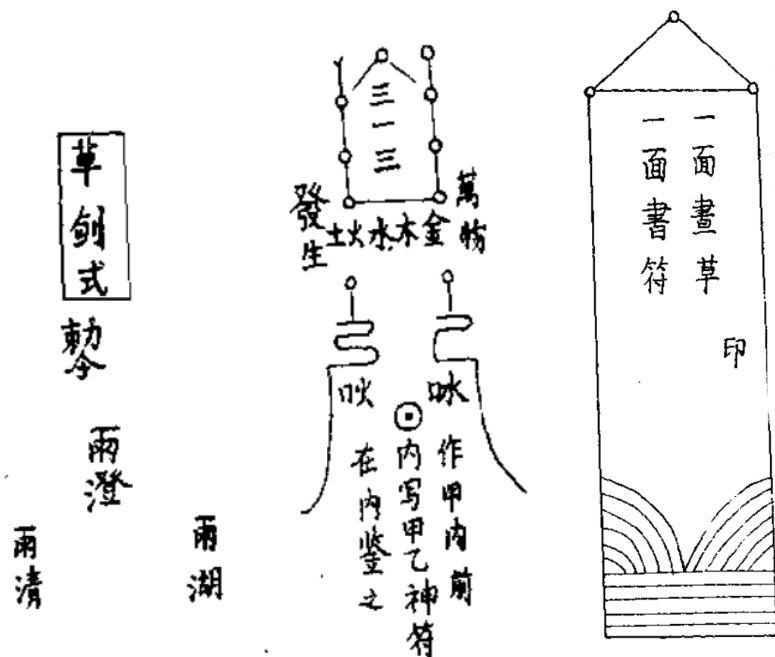 一面畫草
一面書符
印
三一三
萬物
土火水木金
發生
吙
作甲内前
内写甲乙神符
在内鉴之
草劍式
雨
澄
雨
湖
雨
清